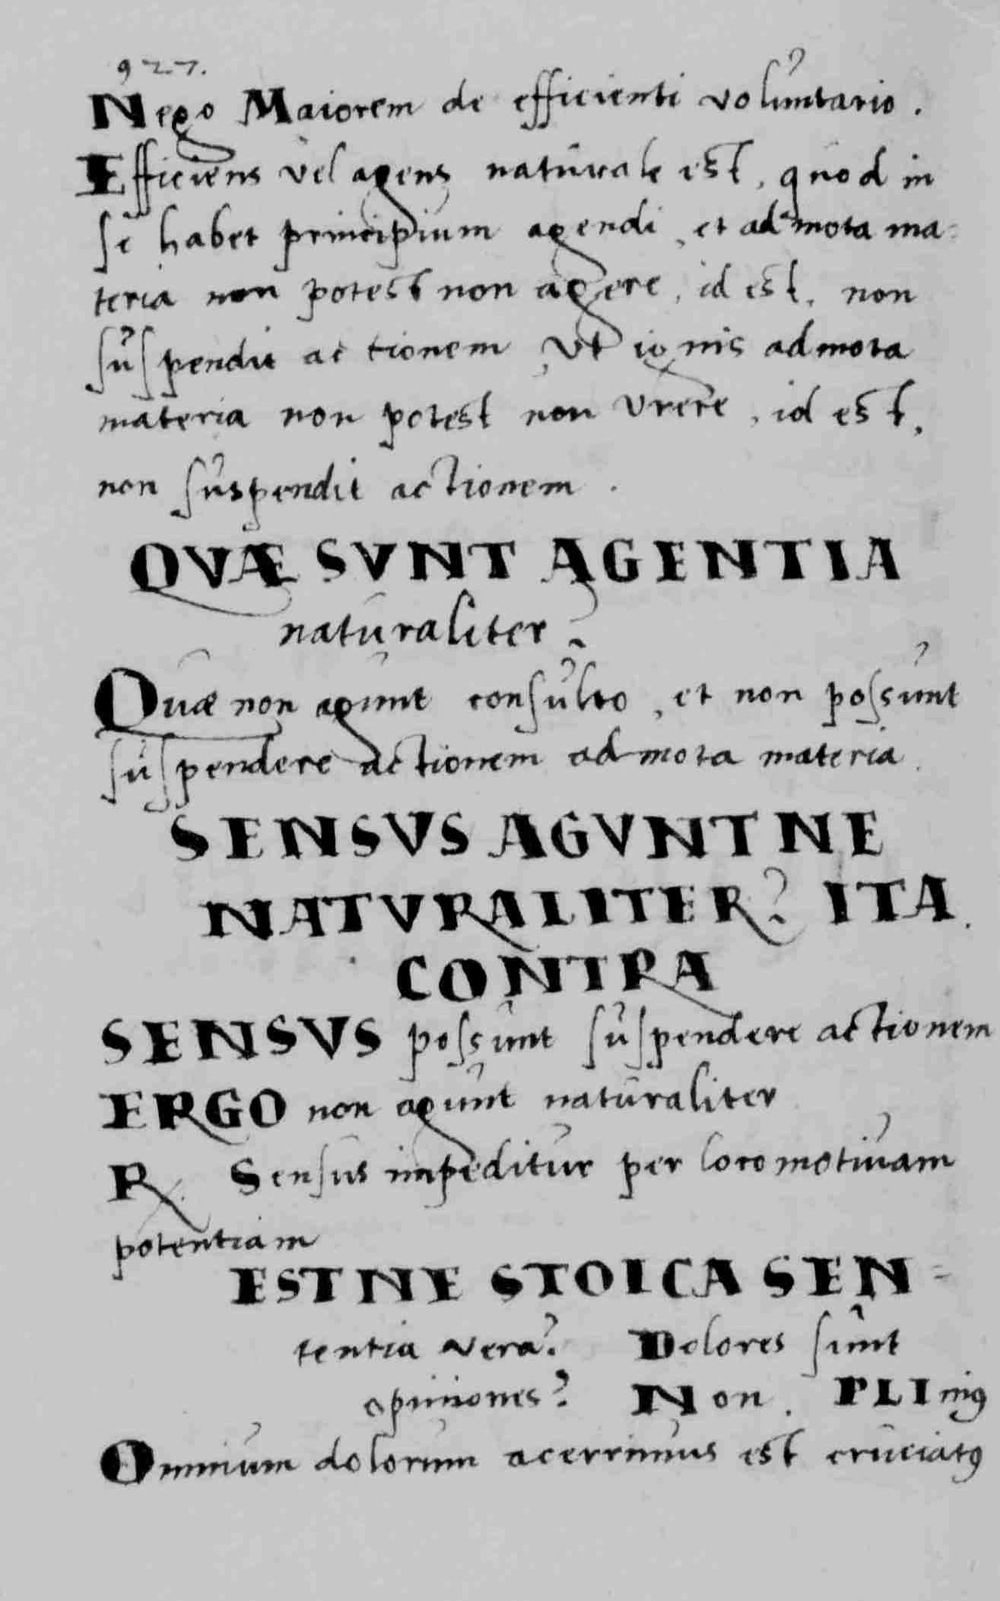 927.
Nego Maiorem de efficienti voluntario.
Efficiens vel agens naturale est, quod in
se habet principium agendi, et admota ma=
teria non potest non agere, id est, non
suspendit actionem, Vt ignis admota
materia non potest non vrere, id est,
non suspendit actionem.
QVÆ SVNT AGENTIA
naturaliter?
Quæ non agunt consulto, et non possunt
suspendere actionem admota materia.
SENSVS AGVNTNE
NATVRALITER? ITA.
CONTRA
SENSVS possunt suspendere actionem
ERGO non agunt naturaliter
℞ Sensus impeditur per locomotiuam
potentiam
ESTNE STOICA SEN=
tentia vera? Dolores sunt
opiniones? Non. PLIniꝰ
Omnium dolorum acerrimus est cruciatꝰ